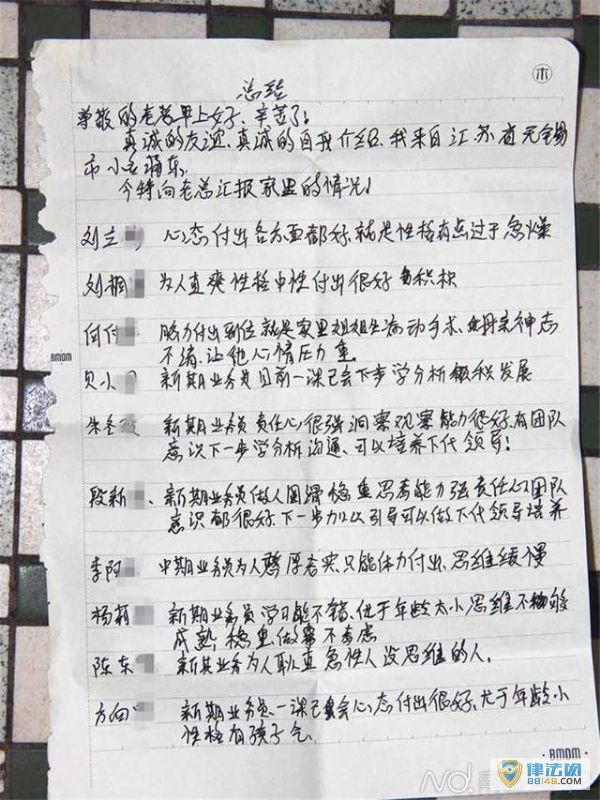 木
总结
尊敬的老总早上好、辛苦了!
真诚的友谊、真诚的自我介绍、我来自江苏省无锡
市小名海东、
今特向老总汇报家里的情况!
刘立 心态付出各方面都好、就是性格有点过于急燥
刘桐 为人直爽性格中性付出很好 积极
付付 脑力付出到位就是家里姐姐生病动手术、母亲神志
不清、让他心情压力重
BMDM
贝小 新期业务员目前一课已会下步学分析 积发展
朱冬 新期业务员责任心很强洞察观察能力很好、有团队
意识下一步学分析沟通、可以培养下代领导!
段新 、新期业务员做人圆滑稳重思考能力强责任心团队
意识都很好、下一步加以引导可以做下代领导培养
李阿 中期业务员为人憨厚老实只能体力付出、思维缓慢
杨莉 新期业务员学习能不错、但于年龄太小思维不够
成熟稳重、做事不考虑
陈东 新期业务为人耿直急性人没思维的人、
方向 新期业务员、一课已会心态付出很好、尤于年龄小
性格有孩子气、
BMDM
NO.
律法网
88148.com